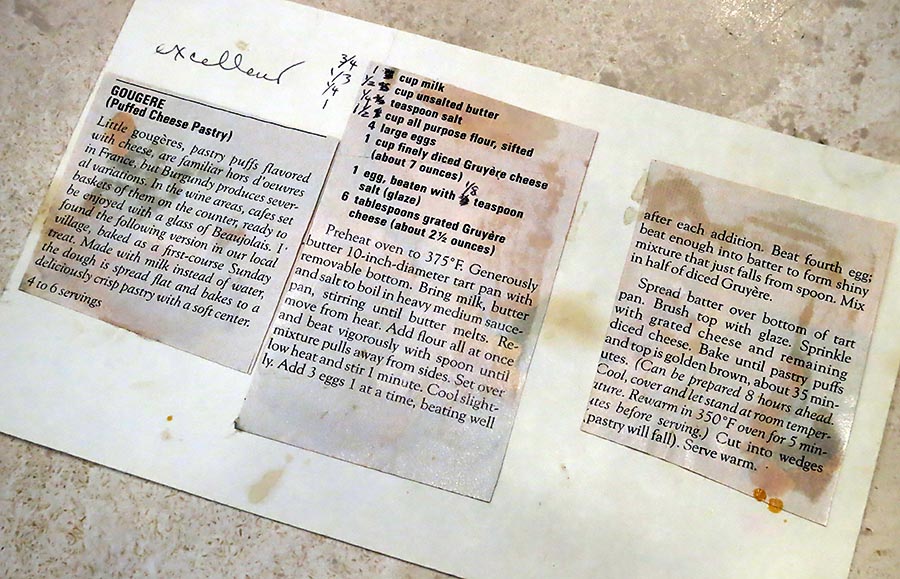 excellent
GOUGERE
(Puffed Cheese Pastry)
Little gougères, pastry puffs flavored
with cheese, are familiar hors d'oeuvres
in France, but Burgundy produces sever-
al variations. In the wine areas, cafes set
baskets of them on the counter, ready to
be enjoyed with a glass of Beaujolais. I
found the following version in our local
village, baked as a first-course Sunday
treat. Made with milk instead of water,
the dough is spread flat and bakes to a
deliciously crisp pastry with a soft center.
4 to 6 servings
3/4
1/3
1/4
1
1 cup milk
1/2 cup unsalted butter
teaspoon salt
1 1/2 cup all purpose flour, sifted
4 large eggs
1 cup finely diced Gruyère cheese
(about 7 ounces)
1 egg, beaten with 1/8 teaspoon
salt (glaze)
6 tablespoons grated Gruyère
cheese (about 2½ ounces)
Preheat oven to 375°F. Generously
butter 10-inch-diameter tart pan with
removable bottom. Bring milk, butter
and salt to boil in heavy medium sauce-
pan, stirring until butter melts. Re-
move from heat. Add flour all at once
and beat vigorously with spoon until
mixture pulls away from sides. Set over
low heat and stir 1 minute. Cool slight-
ly. Add 3 eggs 1 at a time, beating well
after each addition. Beat fourth egg;
beat enough into batter to form shiny
mixture that just falls from spoon. Mix
in half of diced Gruyère.
Spread batter over bottom of tart
pan. Brush top with glaze. Sprinkle
with grated cheese and remaining
diced cheese. Bake until pastry puffs
and top is golden brown, about 35 min-
utes. (Can be prepared 8 hours ahead.
Cool, cover and let stand at room temper-
ature. Rewarm in 350°F oven for 5 min-
utes before serving.) Cut into wedges
(pastry will fall). Serve warm.